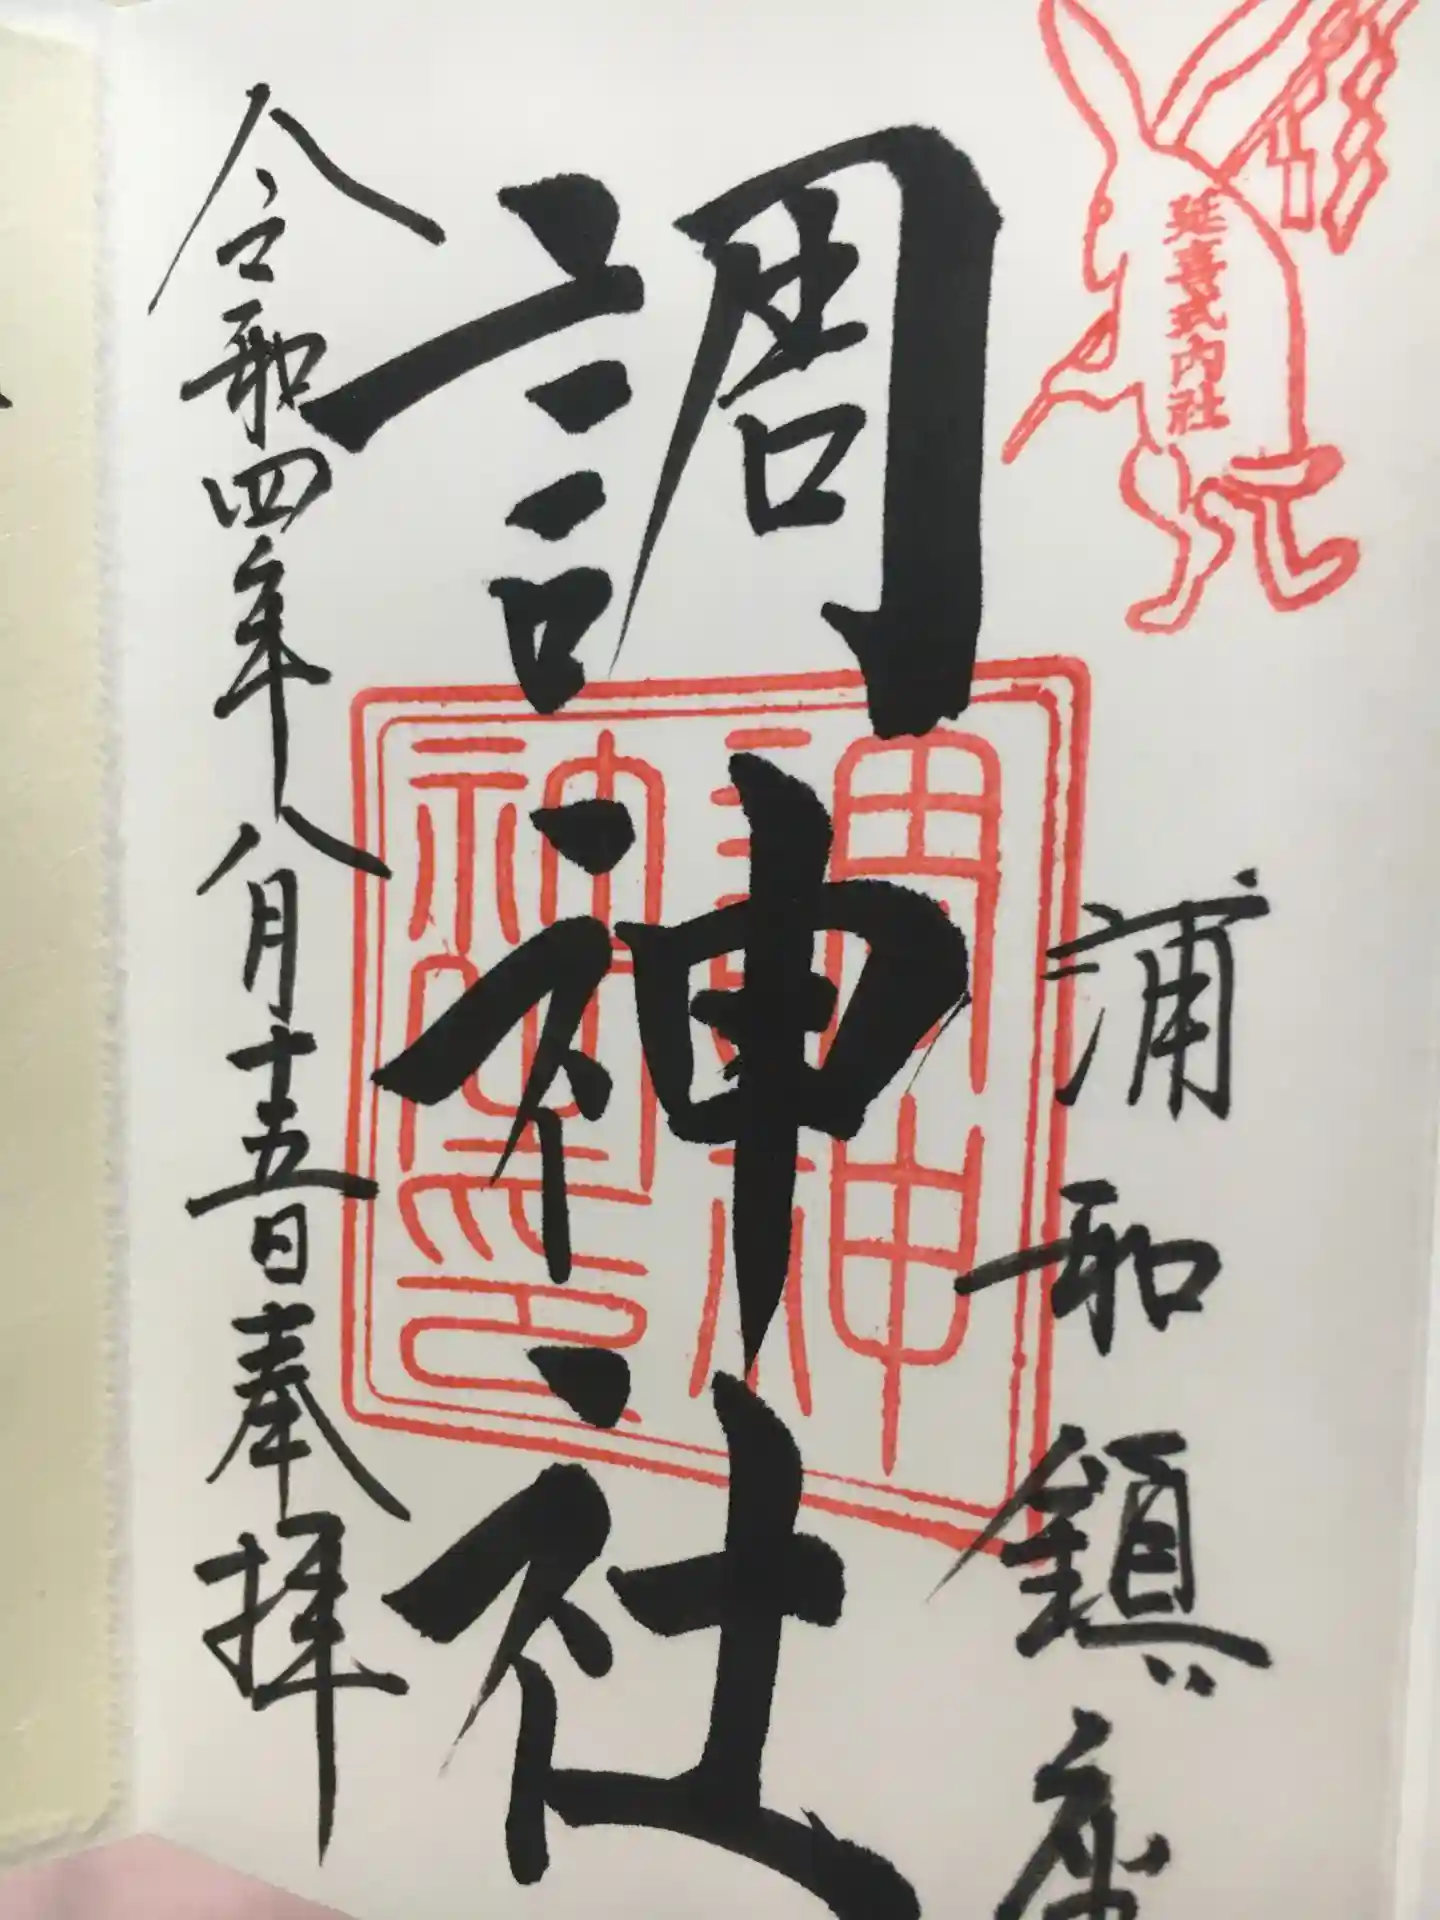 延喜式内社
浦和鎮座
調神社
調神
神社印
令和四年八月十五日奉拝